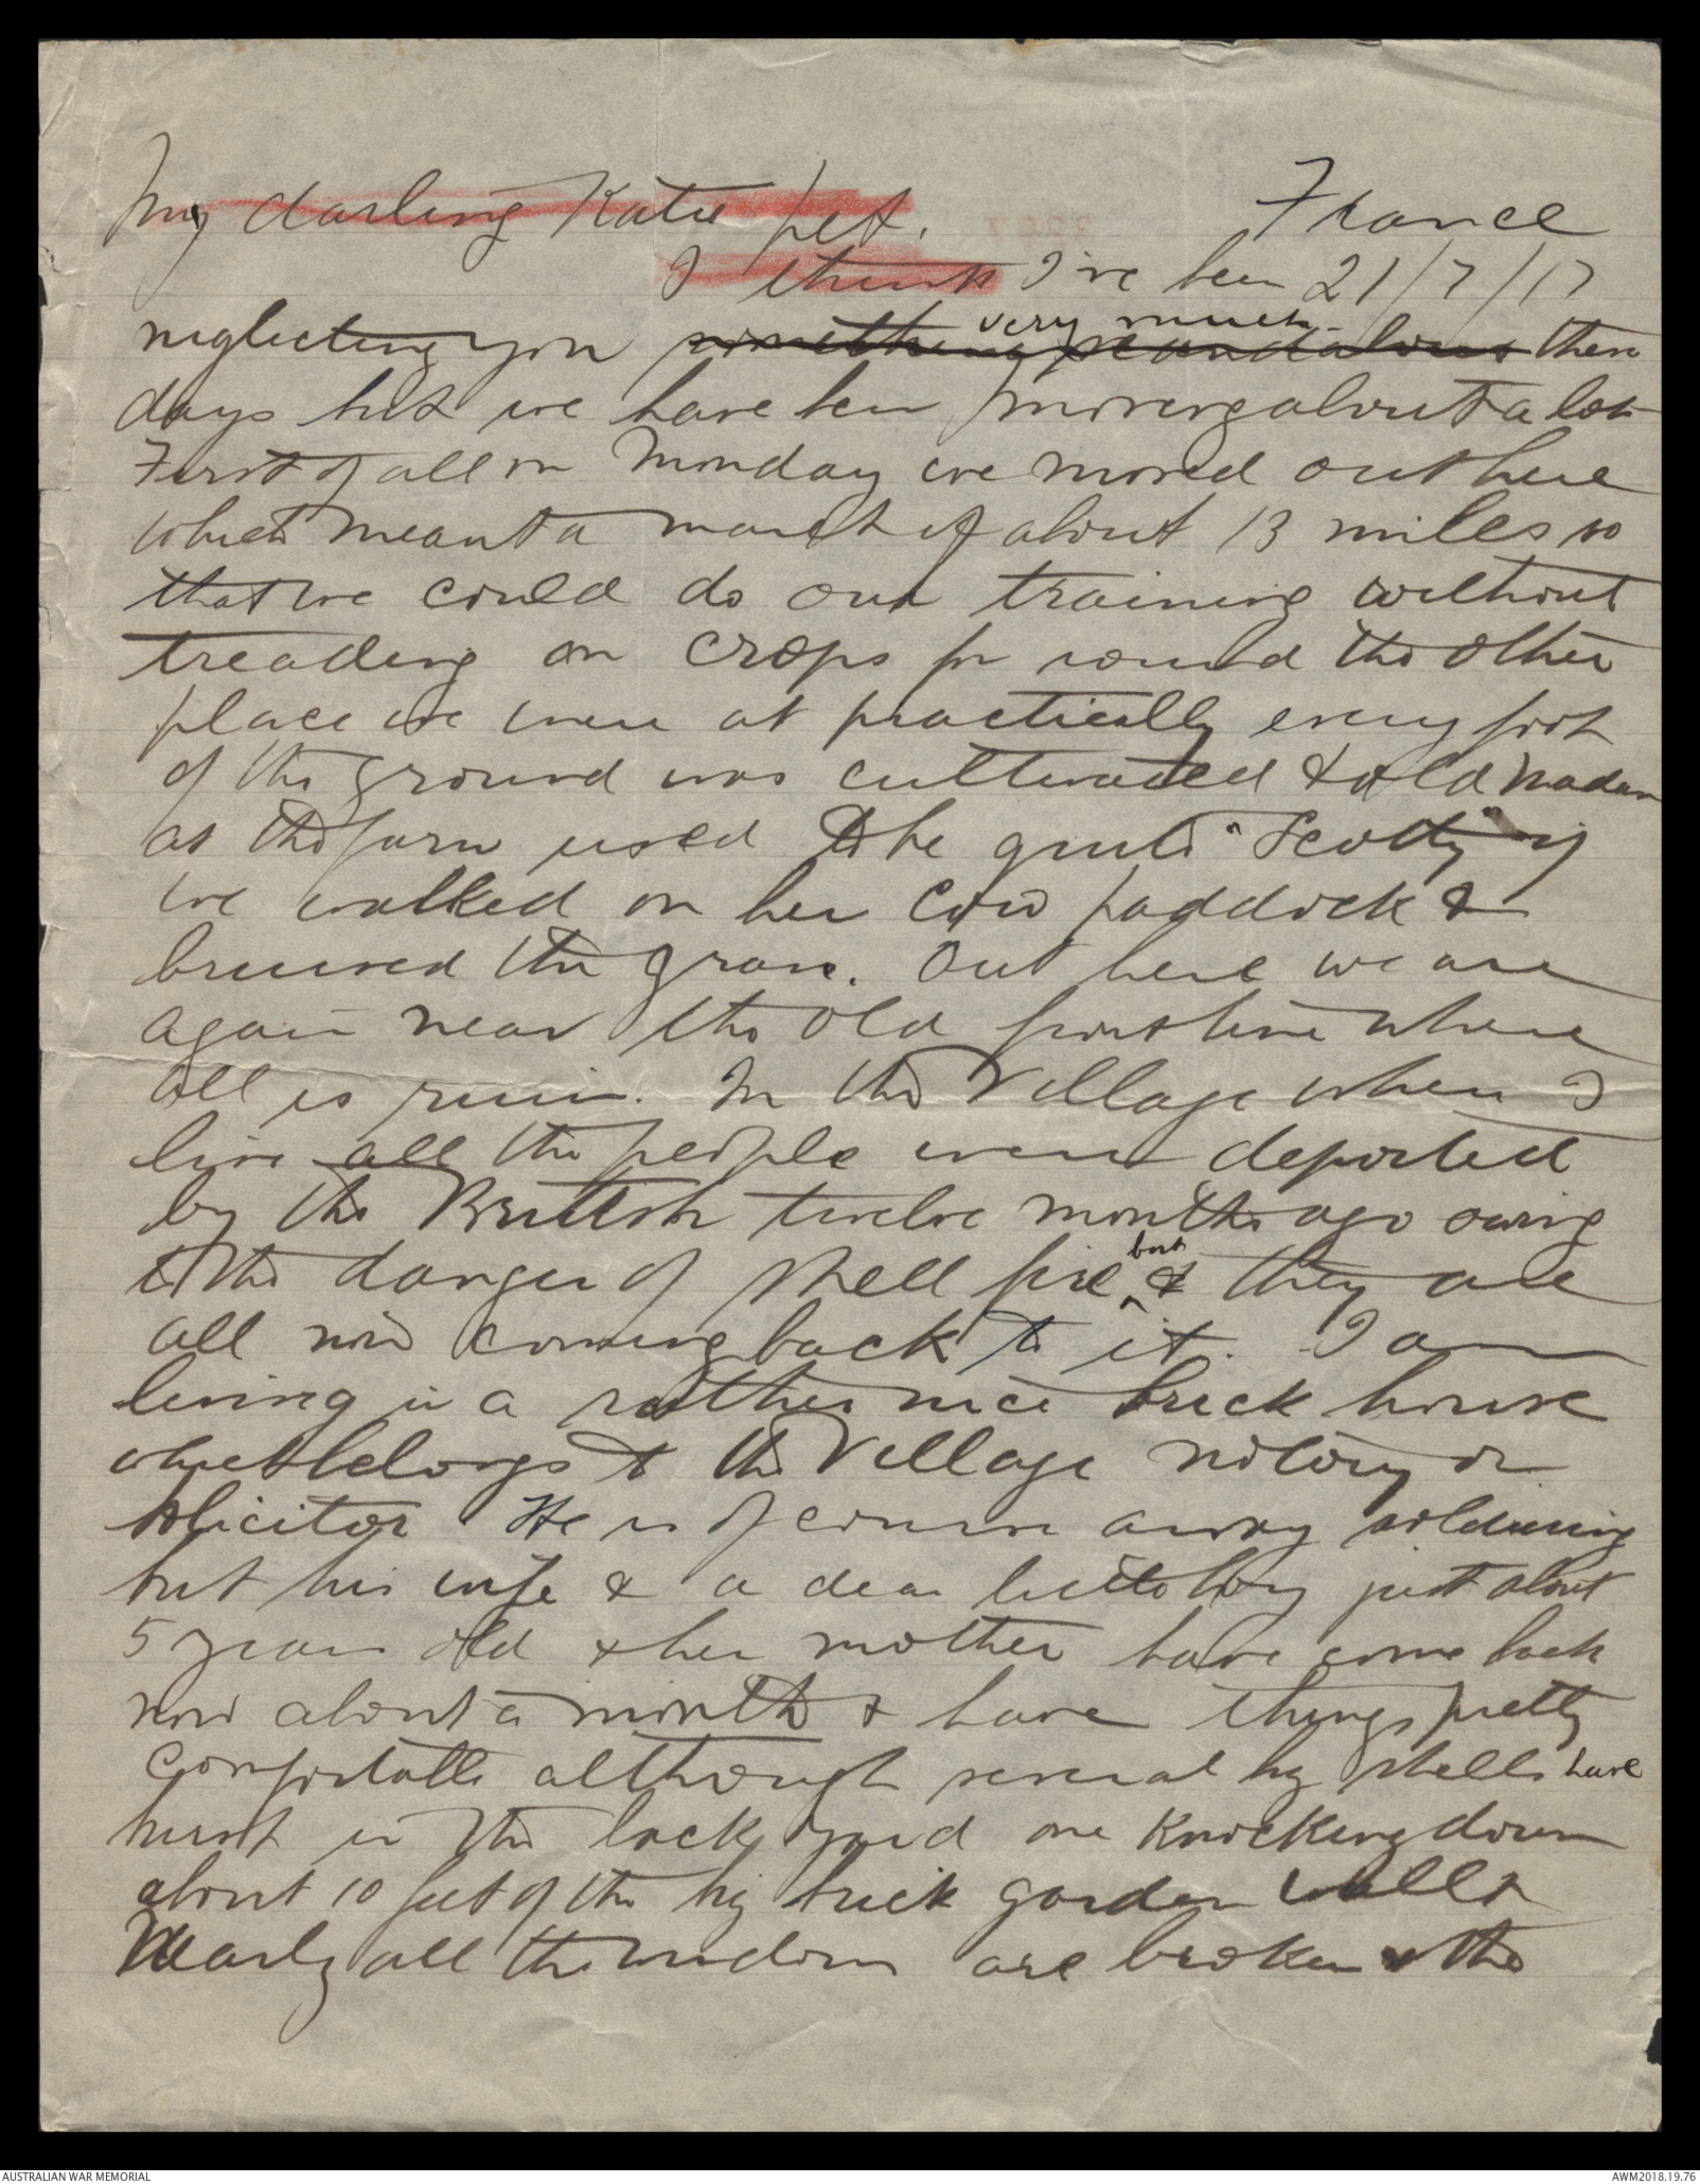 My darling Katie pet.
France
I think I've been 21/7/17
neglecting you something scandalous very much these
days but we have been moving about a lot
First of all on Monday we moved out here
which meant a march of about 13 miles so
that we could do our training without
treading on crops for round the other
place we were at practically every foot
of the ground was cultivated & old Madam
at the farm used to be quite "Scotty" if
we walked on her cow paddock &
bruised the grass. Out here we are
again near the old front line where
all is ruin. In the village where I
live all the people were deported
by the British twelve months ago owing
to the danger of shell fire but & they are
all now coming back to it. I am
living in a rather nice brick house
which belongs to the village notary or
solicitor He is of course away soldiering
but his wife & a dear little boy just about
5 years old & her mother have come back
now about a month & have things pretty
comfortable although several big shells have
burst in the back yard one knocking down
about 10 feet of the big brick garden wall &
Nearly all the windows are broken & the
AUSTRALIAN WAR MEMORIAL
AWM2018.19.76